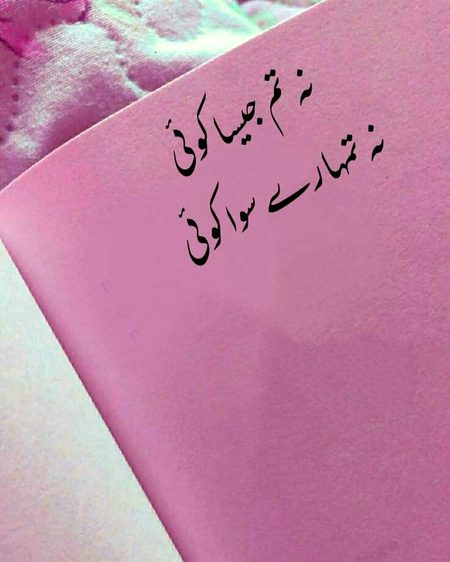 نہ تم جیسا کوئی
نہ تمہارے سوا کوئی